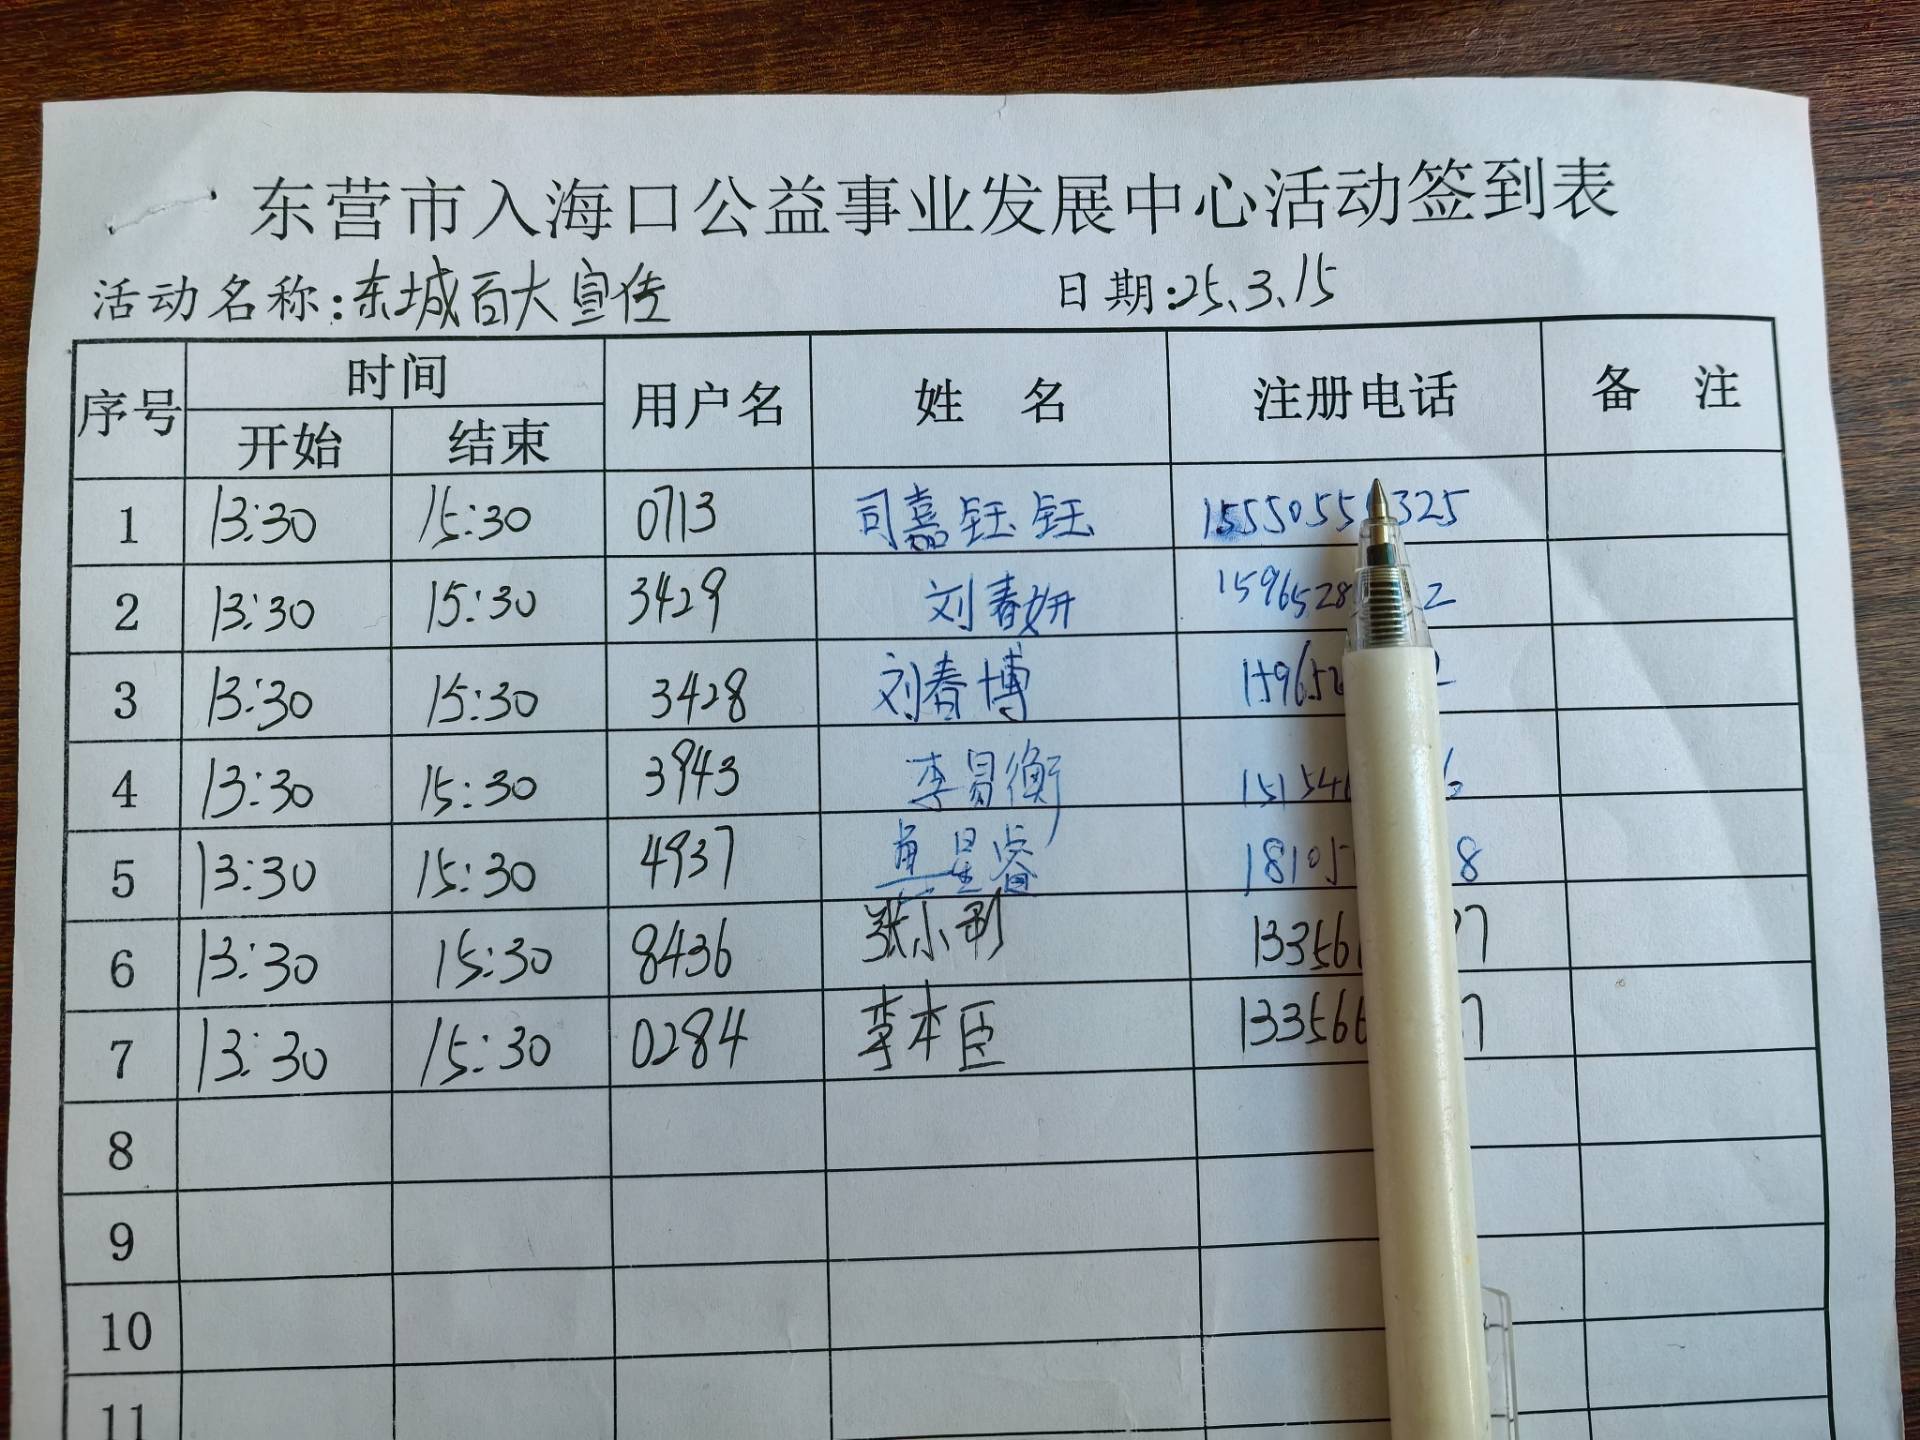 东营市入海口公益事业发展中心活动签到表
活动名称:东城百大宣传 日期:25.3.15
序号 时间 用户名 姓 名 注册电话 备 注
开始 结束
1 13:30 15:30 0713 司嘉钰钰 1555055 325
2 13:30 15:30 3429 刘春妍 1596528 2
3 13:30 15:30 3428 刘春博 159652 2
4 13:30 15:30 3943 李昌衡 15154 6
5 13:30 15:30 4937 星睿 18105 8
6 13:30 15:30 8436 张小彤 13356 7
7 13:30 15:30 0284 李本臣 133566 7
8
9
10
11